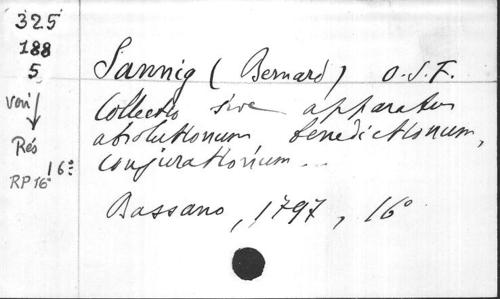 325
188
5
voir
Rés
16°
RP 16°
Sannig (Bernard) O.S.F.
Collectio sive apparatus
absolutionum benedictionum,
conjurationum...
Bassano, 1797, 16°